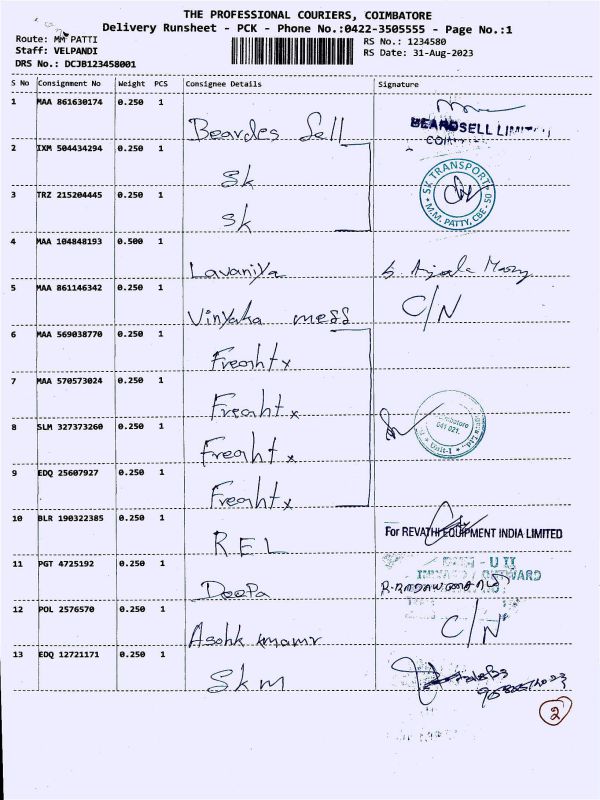 THE PROFESSIONAL COURIERS, COIMBATORE
Delivery Runsheet - PCK - Phone No.:0422-3505555 - Page No.:1
Route: MM PATTI
RS No.: 1234580
Staff: VELPANDI
RS Date: 31-Aug-2023
DRS No.: DCJB123458001
S No Consignment No Weight PCS Consignee Details Signature
1 MAA 861630174 0.250 1
Beardes Sell
BEARDSELL LIMIT
2 IXM 504434294 0.250 1
Sk
SK TRANSPORT
M.M. PATTY, CBE - 50
3 TRZ 215204445 0.250 1
Sk
4 MAA 104848193 0.500 1
Lavaniya
5 MAA 861146342 0.250 1
Vinyaka mess
C/N
6 MAA 569038770 0.250 1
Freaht x
7 MAA 570573024 0.250 1
Freaht x
8 SLM 327373260 0.250 1
Freaht x
641 021.
Unit-1
9 EDQ 25607927 0.250 1
Freaht x
10 BLR 190322385 0.250 1
REL
For REVATHI EQUIPMENT INDIA LIMITED
11 PGT 4725192 0.250 1
Deepa
12 POL 2576570 0.250 1
Asohk kmamr
C/N
13 EDQ 12721171 0.250 1
Skm
2